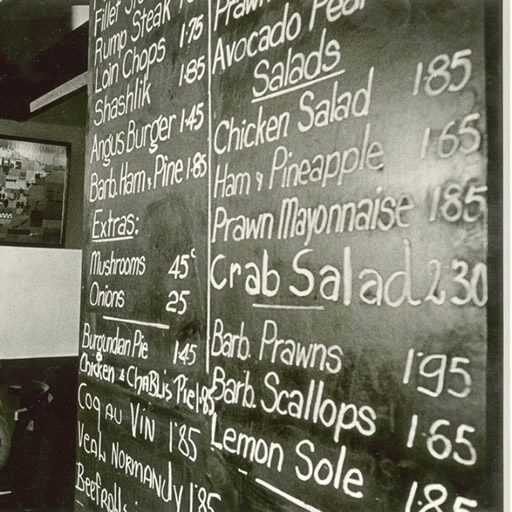 Fillet
Rump Steak
Loin Chops 1·75
Shashlik 1·85
Angus Burger 1·45
Barb. Ham & Pine 1·85
Extras:
Mushrooms 45c
Onions 25
Burgundan Pie 1·45
Chicken & Chablis Pie 1·85
Coq au Vin 1·85
Veal Normandy 1'85
Prawn
Avocado Pear
Salads
Chicken Salad 1·85
Ham & Pineapple 1·65
Prawn Mayonnaise 1·85
Crab Salad 2·30
Barb. Prawns 1·95
Barb. Scallops 1·65
Lemon Sole 1·85